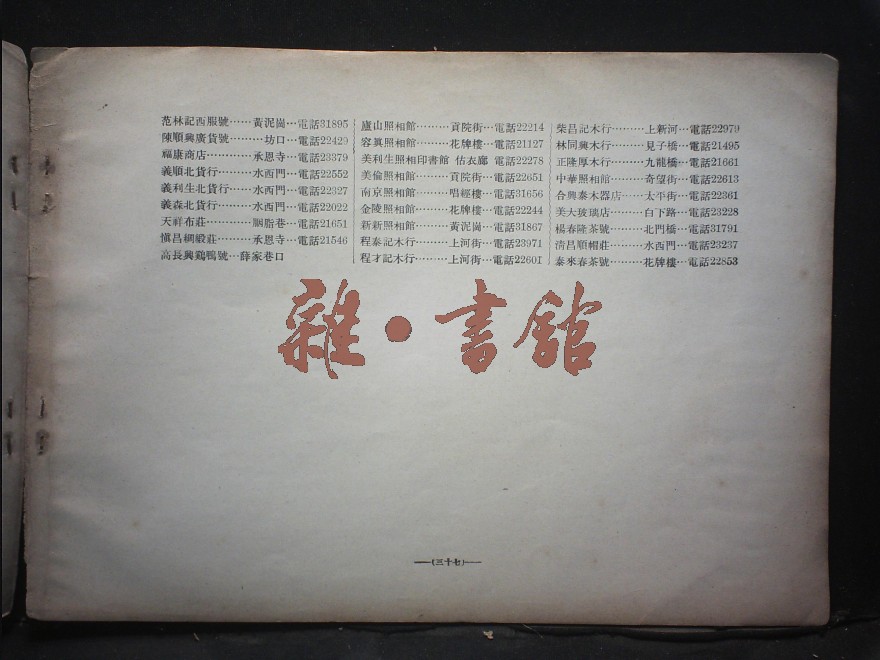 范林記西服號……黃泥崗…電話31895
陳順興廣貨號………坊口…電話22429
福康商店…………承恩寺…電話23379
義順北貨行………水西門…電話22552
義利生北貨行……水西門…電話22327
義森北貨行………水西門…電話22022
天祥布莊…………胭脂巷…電話21651
愼昌綢緞莊………承恩寺…電話21546
高長興鷄鴨號…薛家巷口
廬山照相館………貢院街…電話22214
容眞照相館………花牌樓…電話21127
美利生照相印書館 估衣廊 電話22278
美倫照相館………貢院街…電話22651
南京照相館………唱經樓…電話31656
金陵照相館………花牌樓…電話22244
新新照相館………黃泥崗…電話31867
程泰記木行………上河街…電話23971
程才記木行………上河街…電話22601
柴昌記木行………上新河…電話22979
林同興木行………見子橋…電話21495
正隆厚木行………九龍橋…電話21661
中華照相館………奇望街…電話22613
合興泰木器店……太平街…電話22361
美大玻璃店………白下路…電話23228
楊春隆茶號………北門橋…電話31791
清昌順帽莊………水西門…電話23237
泰來春茶號………花牌樓…電話22853
雜·書館
(三十七)